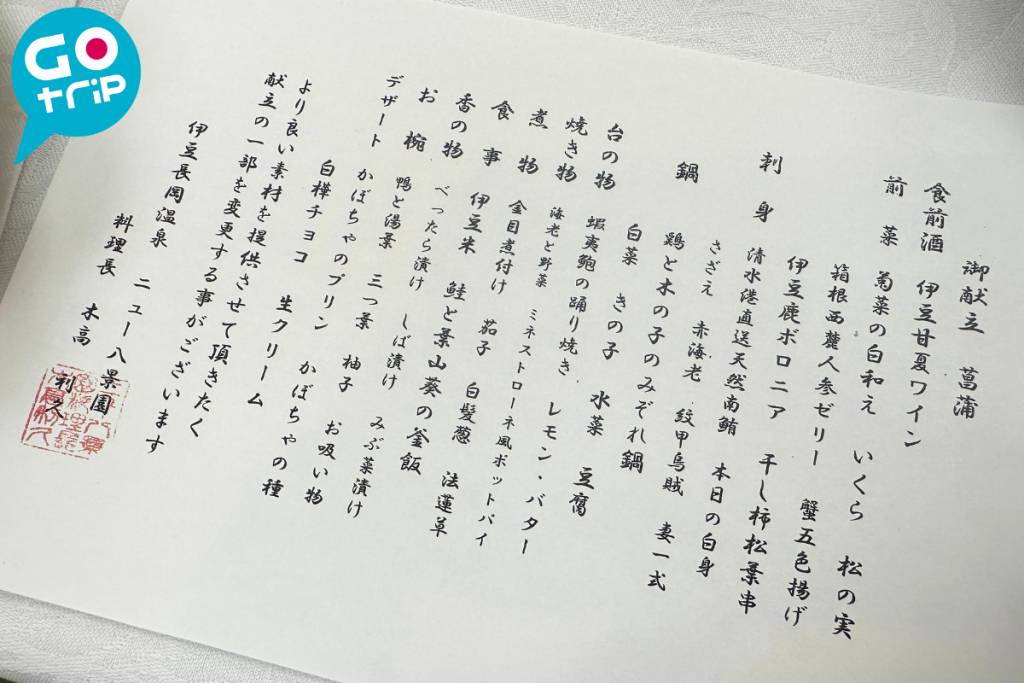 GO triP
御献立 菖蒲
食前酒 伊豆甘夏ワイン
前菜 菊菜の白和え いくら 松の実
箱根西麓人参ゼリー 蟹五色揚げ
伊豆鹿ボロニア 干し柿松葉串
刺身 清水港直送天然南鮪 本日の白身
さざえ 赤海老 紋甲烏賊 妻一式
鍋 鶏と木の子のみぞれ鍋
白菜 きの子 水菜 豆腐
台の物 蝦夷鮑の踊り焼き レモン・バター
焼き物 海老と野菜 ミネストローネ風ポットパイ
煮物 金目煮付け 茄子 白髪葱 法蓮草
食事 伊豆米 鮭と葉山葵の釜飯
香の物 べったら漬け しば漬け みぶ菜漬け
お椀 鴨と湯葉 三つ葉 柚子 お吸い物
デザート かぼちゃのプリン かぼちゃの種
白樺チョコ 生クリーム
より良い素材を提供させて頂きたく
献立の一部を変更する事がございます
伊豆長岡温泉 ニュー八景園
料理長 木高 利久